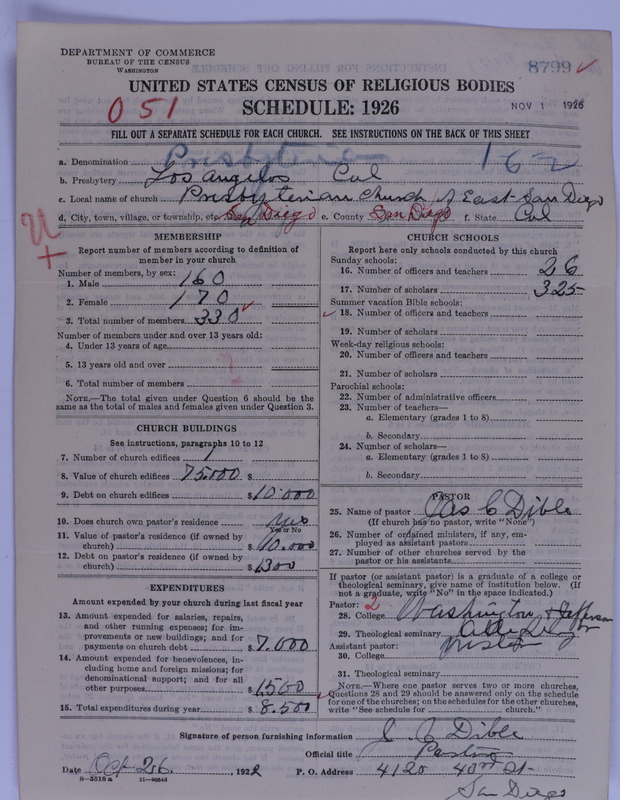 DEPARTMENT OF COMMERCE
BUREAU OF THE CENSUS
WASHINGTON
8799 ✓
UNITED STATES CENSUS OF RELIGIOUS BODIES
051
SCHEDULE: 1926
NOV 1 1926
FILL OUT A SEPARATE SCHEDULE FOR EACH CHURCH. SEE INSTRUCTIONS ON THE BACK OF THIS SHEET
a. Denomination Presbyterian 162
b. Presbytery Los Angelos Cal
c. Local name of church Presbyterian Church of East San Diego
d. City, town, village, or township, etc. San Diego e. County San Diego f. State Cal
MEMBERSHIP
Report number of members according to definition of
member in your church
Number of members, by sex:
1. Male 160
2. Female 170
3. Total number of members 330 ✓
Number of members under and over 13 years old:
4. Under 13 years of age
5. 13 years old and over
6. Total number of members
NOTE.—The total given under Question 6 should be
same as the total of males and females given under Question 3.
CHURCH BUILDINGS
See instructions, paragraphs 10 to 12
7. Number of church edifices 1
8. Value of church edifices 75.000 $
9. Debt on church edifices $ 10.000
10. Does church own pastor's residence yes
Yes or No
11. Value of pastor's residence (if owned by
church) $ 10.000
12. Debt on pastor's residence (if owned by
church) $ 1300
EXPENDITURES
Amount expended by your church during last fiscal year
13. Amount expended for salaries, repairs,
and other running expenses; for im-
provements or new buildings; and for
payments on church debt $ 7.000
14. Amount expended for benevolences, in-
cluding home and foreign missions; for
denominational support; and for all
other purposes $ 1500
15. Total expenditures during year $ 8.500
CHURCH SCHOOLS
Report here only schools conducted by this church
Sunday schools:
16. Number of officers and teachers 26
17. Number of scholars 325
Summer vacation Bible schools:
✓ 18. Number of officers and teachers
19. Number of scholars
Week-day religious schools:
20. Number of officers and teachers
21. Number of scholars
Parochial schools:
22. Number of administrative officers
23. Number of teachers—
a. Elementary (grades 1 to 8)
b. Secondary
24. Number of scholars—
a. Elementary (grades 1 to 8)
b. Secondary
PASTOR
25. Name of pastor Jas C Dible
(If church has no pastor, write "None")
26. Number of ordained ministers, if any, em-
ployed as assistant pastors
27. Number of other churches served by the
pastor or his assistants
If pastor (or assistant pastor) is a graduate of a college or
theological seminary, give name of institution below. (If
not a graduate, write "No" in the space indicated.)
Pastor: 2
28. College Washington & Jefferson
29. Theological seminary
Assistant pastor:
30. College
31. Theological seminary
NOTE.—Where one pastor serves two or more churches,
Questions 28 and 29 should be answered only on the schedule
for one of the churches; on the schedules for the other churches,
write "See schedule for church."
Signature of person furnishing information J C Dible
Official title Pastor
Date Oct 26, 192
P. O. Address 4120 43rd St
8-5518 a
San Diego